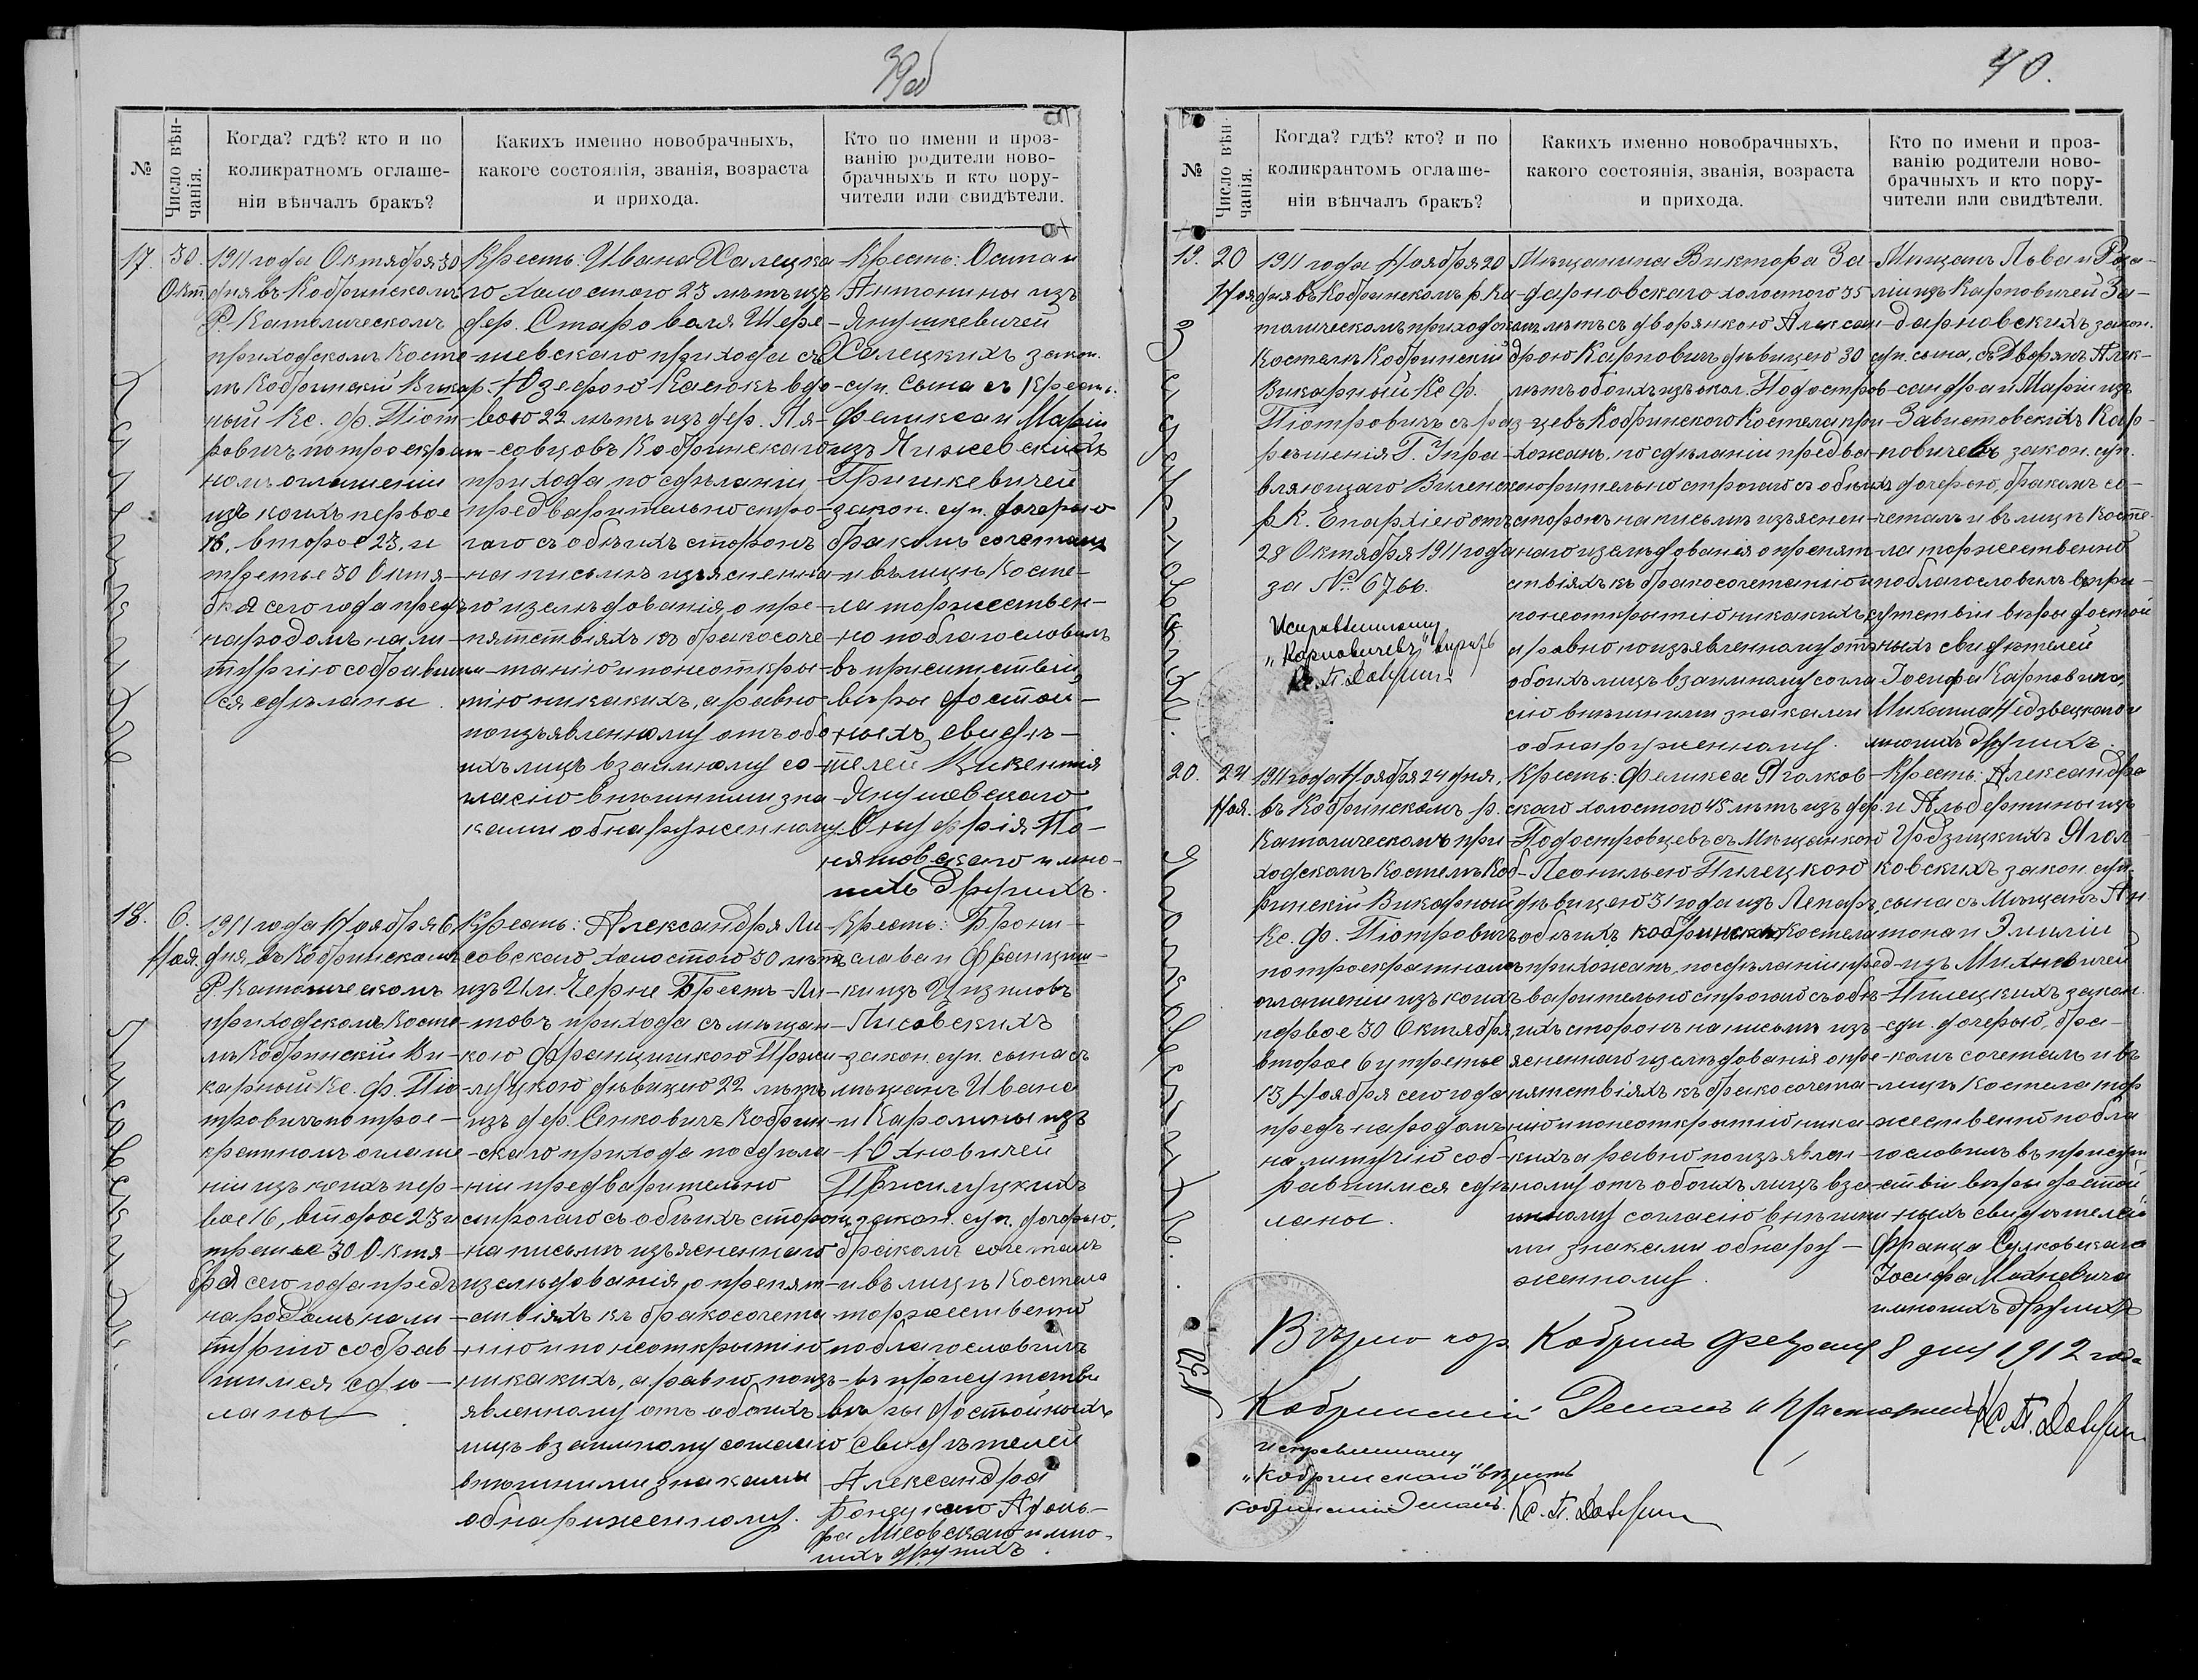 39об
№
Число вѣн-
чанія.
Когда? гдѣ? кто и по
коликратномъ оглаше-
ніи вѣнчалъ бракъ?
Какихъ именно новобрачныхъ,
какоге состоянія, званія, возраста
и прихода.
Кто по имени и проз-
ванію родители ново-
брачныхъ и кто пору-
чители или свидѣтели.
17.
30.
Окт.
Халецкій
1911 года Октября 30
дня въ Кобринскомъ
Р-Католическомъ
приходскомъ Косте-
лѣ Кобринскій Викар-
ный Кс. Ф. Піот-
ровичъ по троекрат-
номъ оглашеніи
изъ коихъ первое
16, второе 23, и
третье 30 Октя-
бря сего года предъ
народомъ на ли-
тургію собравшим-
ся сдѣланы.
Крестъ: Ивана Халецка-
го холостого 23 лѣтъ изъ
дер. Староволя Шере-
шевскаго прихода съ
Юзефою Касюкъ вдо-
вою 22 лѣтъ изъ дер. Ля-
совцовъ Кобринскаго
прихода по сдѣланіи
предварительно стро-
гаго съ обѣихъ сторонъ
на письмѣ изъясненна-
го изслѣдованія, о пре-
пятствіяхъ къ бракосоче-
танію и по неоткры-
тію никакихъ, а равно
по изъявленному отъ обо-
ихъ лицъ взаимному со-
гласію внѣшними зна-
ками обнаруженному.
Крестъ: Остапа и
Антонины изъ
Янушкевичей
Халецкихъ закон.
суп. сына съ Крестъ.
Феликса и Маріи
изъ Лижевскихъ
Гришкевичей
закон. суп. дочерью
бракомъ сочеталъ
и въ лицѣ Косте-
ла торжествен-
но поблагословилъ
въ присутствіи
вѣры достой-
ныхъ свидѣ-
телей Викентія
Янушевскаго
Онуфрія По-
нятовскаго и мно-
гихъ другихъ.
18.
6.
Ноя.
Лисовскій
1911 года Ноября 6
дня, въ Кобринскомъ
Р. Католическомъ
приходскомъ Косте-
лѣ Кобринскій Ви-
карный Кс. Ф. Піо-
тровичъ по трое-
кратномъ оглаше-
ніи изъ коихъ пер-
вое 16, второе 23 и
третье 30 Октя-
бря сего года предъ
народомъ на ли-
тургію собрав-
шимся сдѣ-
ланы.
Крестъ: Александра Ли-
совскаго холостого 30 лѣтъ
изъ Им. Черне Брестъ-Ли-
товъ прихода съ мѣщан-
кою Францишкою Прже-
луцкою дѣвицею 22 лѣтъ
изъ дер. Сенковичъ Кобрин-
скаго прихода по сдѣла-
ніи предварительно
строгаго съ обѣихъ сторонъ
на письмѣ изъясненнаго
изслѣдованія, о препят-
ствіяхъ къ бракосочета-
нію и по неоткрытію
никакихъ, а равно, по изъ-
явленному отъ обоихъ
лицъ взаимному согласію
внѣшними знаками
обнаруженному.
Крестъ: Брони-
слава и Францишки
изъ
Лисовскихъ
закон. суп. сына съ
мѣщанъ Ивана
и Каролины изъ
Юхновичей
закон. суп. дочерью,
бракомъ сочеталъ
и въ лицѣ Костела
торжественно
поблагословилъ
въ присутстви
вѣры достойныхъ
свидѣтелей
Александра
Адоль-
фа Лисовскаго и мно-
гихъ другихъ.
40.
№
Число вѣн-
чанія.
Когда? гдѣ? кто? и по
коликрантомъ оглаше-
ніи вѣнчалъ бракъ?
Какихъ именно новобрачныхъ,
какого состоянія, званія, возраста
и прихода.
Кто по имени и проз-
ванію родители ново-
брачныхъ и кто пору-
чители или свидѣтели.
19.
20
Ноя
Задарновскій.
1911 года Ноября 20
дня въ Кобринскомъ р. Ка-
толическомъ приходскомъ
Костелѣ Кобринскій
Викарный Кс. Ф.
Піотровичъ съ раз-
рѣшенія Г. Упра-
вляющаго Виленскою
р. К. Епархіею отъ
28 Октября 1911 года
за № 6766.
Исправленному
„Карповичевъ" вѣрить
Кс. П.
Мѣщанина Виктора За-
дарновскаго холостого 35
лѣтъ съ дворянкою Алексан-
дрою Карповичъ дѣвицею 30
лѣтъ обоихъ изъ окол. Подостров-
цевъ Кобринскаго Костела при-
хожанъ, по сдѣланіи предва-
рительно строгаго съ обѣихъ
сторонъ на письмѣ изъяснен-
наго изслѣдованія о препят-
ствіяхъ къ бракосочетанію и
по неоткрытію никакихъ,
а равно по изъявленному отъ
обоихъ лицъ взаимному согла-
сію внѣшними знаками
обнаруженному.
Мѣщанъ Льва и Роза-
ліи изъ Карповичей За-
дарновскихъ закон.
суп. сына, съ Дворянъ Алек-
сандра и Маріи изъ
Завистовскихъ Кар-
повичевъ закон. суп.
дочерью, бракомъ со-
четалъ и въ лицѣ Косте-
ла торжественно
поблагословилъ въ при-
сутствіи вѣры достой-
ныхъ свидѣтелей
Іосифа Карповича,
Михаила Недзвецкаго и
многихъ другихъ.
20.
24
Ноя.
Яголковскій.
1911 года Ноября 24 дня,
въ Кобринскомъ р.
Католическомъ при-
ходскомъ Костелѣ Коб-
ринскій Викарный
Кс. Ф. Піотровичъ
по троекратномъ
оглашеніи изъ коихъ
первое 30 Октября,
второе 6 и третье
13 Ноября сего года
предъ народомъ
на литургію соб-
равшимся сдѣ-
ланы.
Крестъ: Феликса Яголков-
скаго холостого 45 лѣтъ изъ дер.
Подостровцевъ съ Мѣщанкою
Леонильею Пилецкою
дѣвицею 31 года изъ Лепаръ,
обѣихъ Кобринскаго Костела
прихожанъ, по сдѣланіи пред-
варительно строгаго съ обѣ-
ихъ сторонъ на письмѣ изъ-
ясненнаго изслѣдованія о пре-
пятствіяхъ къ бракосочета-
нію и по неоткрытію ника-
кихъ а равно по изъявлен-
ному отъ обоихъ лицъ вза-
имному согласію внѣшни-
ми знаками обнару-
женному.
Крестъ: Александра
и Альбертины изъ
Гродзицкихъ Ягол-
ковскихъ закон. суп.
сына съ Мѣщанъ Ан-
тона и Эмиліи
изъ Михневичей
Пилецкихъ закон.
суп. дочерью, бра-
комъ сочеталъ и въ
лицѣ Костела тор-
жественно побла-
гословилъ въ присут-
ствіи вѣры достой-
ныхъ свидѣтелей
Франца Сулковскаго
Іосифа Махневича
и многихъ другихъ
Вѣрно гор. Кобринъ Февраля 8 дня 1912 года
Кобринскій Деканъ и Настоятель Кс. П.
Исправленному
„Кобринскаго" вѣрить
Кобринскій Деканъ. Кс. П.